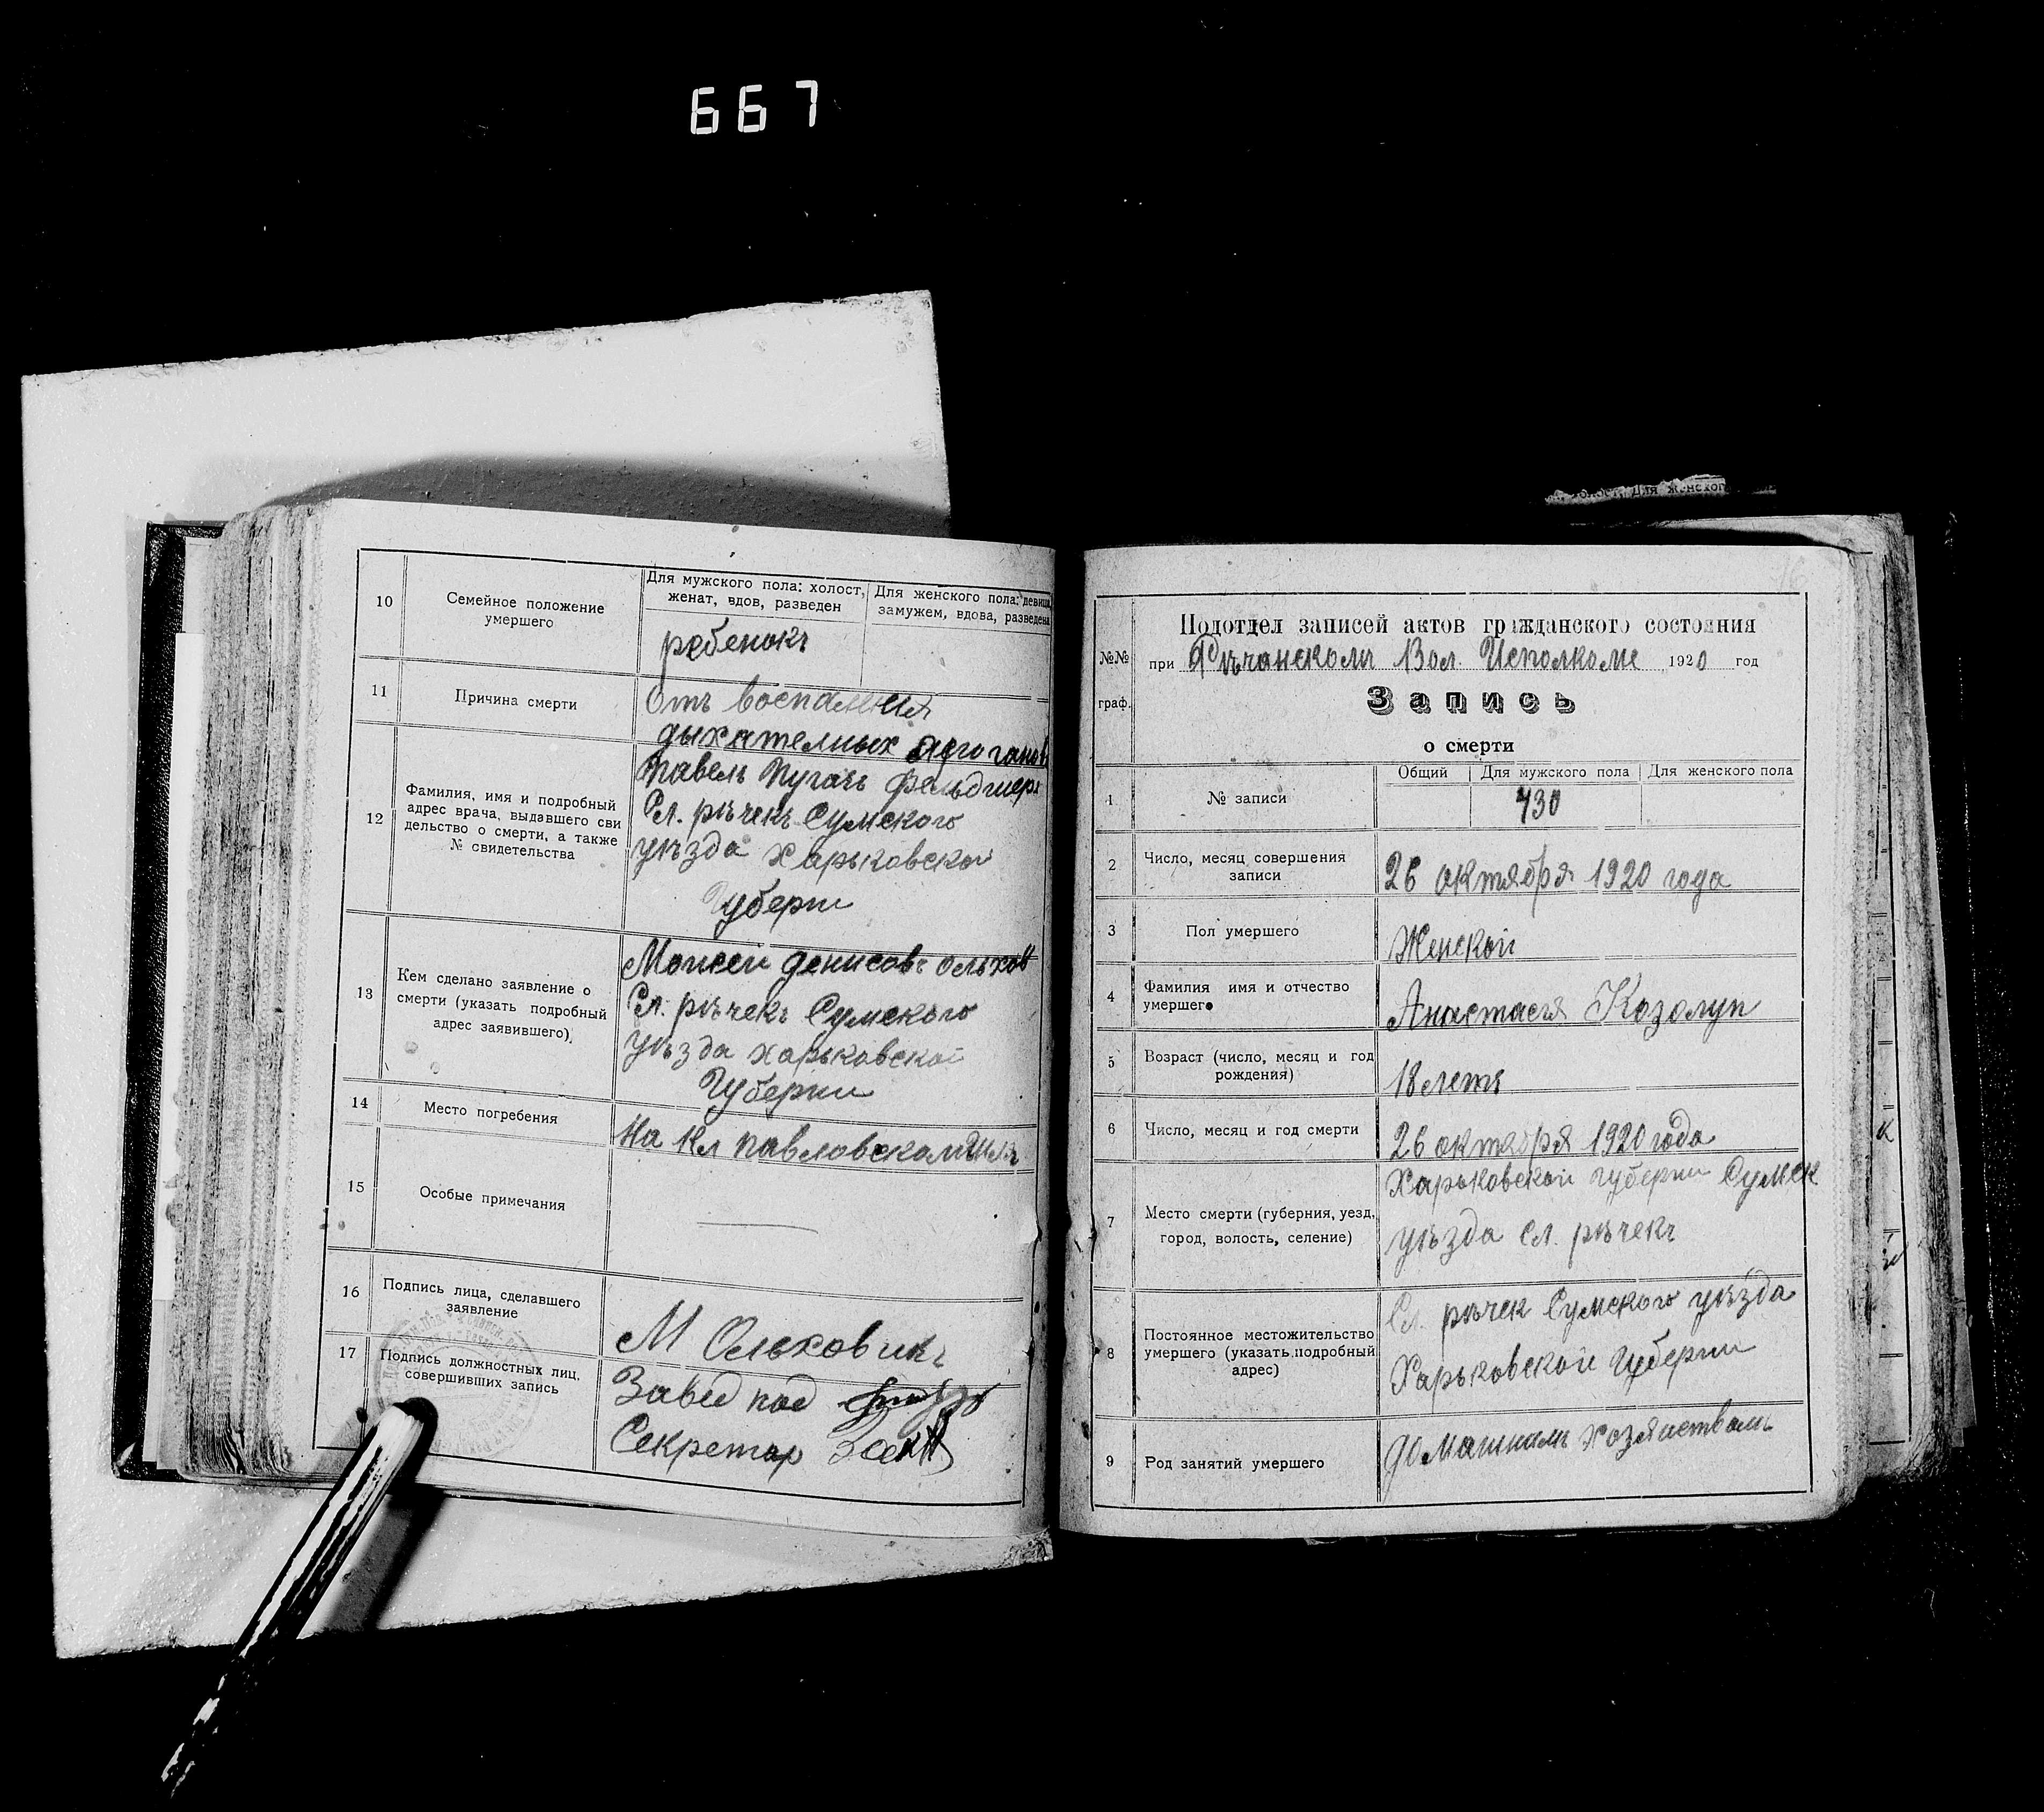 667
10
Семейное положение
умершего
Для мужского пола: холост,
женат, вдов, разведен
Для женского пола: девица,
замужем, вдова, разведена
ребенокъ
11
Причина смерти
Отъ воспаления
дыхателных
12
Фамилия, имя и подробный
адрес врача, выдавшего сви
детельство о смерти, а также
№ свидетельства
Павелъ Пугачъ Фельдшеръ
Сл. рѣчекъ Сумского
уѣзда Харьковской
Губерни
13
Кем сделано заявление о
смерти (указать подробный
адрес заявившего)
Моисей денисовъ Ольхов
Сл. рѣчекъ Сумского
уѣзда харьковской
Губерни
14
Место погребения
На Кл
15
Особые примечания
16
Подпись лица, сделавшего
заявление
М Ольховикъ
17
Подпись должностных лиц,
совершивших запись
Завед под
Секретар
№№
граф.
Подотдел записей актов гражданского состояния
при Рѣчанскомъ Вол. Исполкоме 1920 год
Запись
о смерти
1
№ записи
Общий
Для мужского пола
Для женского пола
430
2
Число, месяц совершения
записи
26 октября 1920 года
3
Пол умершего
Женской
4
Фамилия имя и отчество
умершего
Анастасія Козолуп
5
Возраст (число, месяц и год
рождения)
18 летъ
6
Число, месяц и год смерти
26 октября 1920 года
7
Место смерти (губерния, уезд,
город, волость, селение)
Харьковской губерни Сумск
уѣзда сл. рѣчекъ
8
Постоянное местожительство
умершего (указать подробный
адрес)
Сл. рѣчек Сумского уѣзда
Харьковской Губерни
9
Род занятий умершего
домашнимъ хозяиствомъ